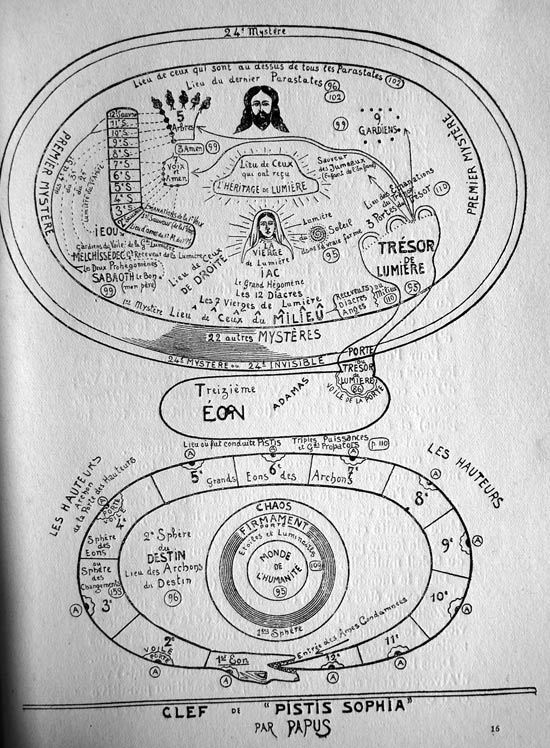 24e Mystère
Lieu de ceux qui sont au dessus de tous les Parastates (102)
Lieu du dernier Parastates (96)
(102)
PREMIER MYSTÈRE
PREMIER MYSTÈRE
12e Sauveur
11e S.
10e S.
9e S.
8e S.
7e S.
6e S.
5e S.
4e S.
3e S.
5
Arbres
3 Amen (99)
7
Voix et
Amen
(99)
9
GARDIENS
Lieu de Ceux
qui ont reçu
L'HÉRITAGE DE LUMIÈRE
Sauveur
des Jumeaux
Lieu des Emanations
3 Portes du Trésor
(110)
TRÉSOR
DE
LUMIÈRE
(95)
IEOU
Gardiens du Voile de la Gde Lumière
MELCHISSEDEC Gd Receveur de la Lumière
Les Deux Prohegomènes
SABAOTH Le Bon
(mon père)
(99)
Lieu de Ceux
DE DROITE
LA
VIERGE
de Lumière
Lumière
du Soleil
dans sa vraie forme
(95)
IAC
Le Grand Hégomène
Les 12 Diacres
Les 7 Vierges de Lumière
1er Mystère Lieu de Ceux du MILIEU
Receveurs du Milieu
Diacres
Anges
(110)
22 autres MYSTÈRES
24e MYSTÈRE OU 24e INVISIBLE
PORTE
DU
TRÉSOR
DE
LUMIÈRE
(86)
VOILE DE LA PORTE
Treizième
ÉON
ADAMAS
Lieu où fut conduite PISTIS
Triples Puissances
et Gds Propators
p 110
LES HAUTEURS
Archon
de la Porte des Hauteurs
LES HAUTEURS
PORTE
VOILE
4e
5e
6e
7e
Grands Eons des Archons
8e
9e
10e
11e
12e
1er Eon
2e
VOILE
PORTE
3e
Sphère
des
Eons
ou
Sphère
des
Changements
(155)
2e Sphère
du
DESTIN
Lieu des Archons
du Destin
(96)
CHAOS
FIRMAMENT
PORTE
Etoiles et Luminaires
(109)
MONDE
DE
L'HUMANITÉ
(95)
1ère Sphère
Entrée des Ames Condamnées
A
A
A
A
A
A
A
A
A
A
A
A
CLEF DE "PISTIS SOPHIA"
PAR PAPUS
16